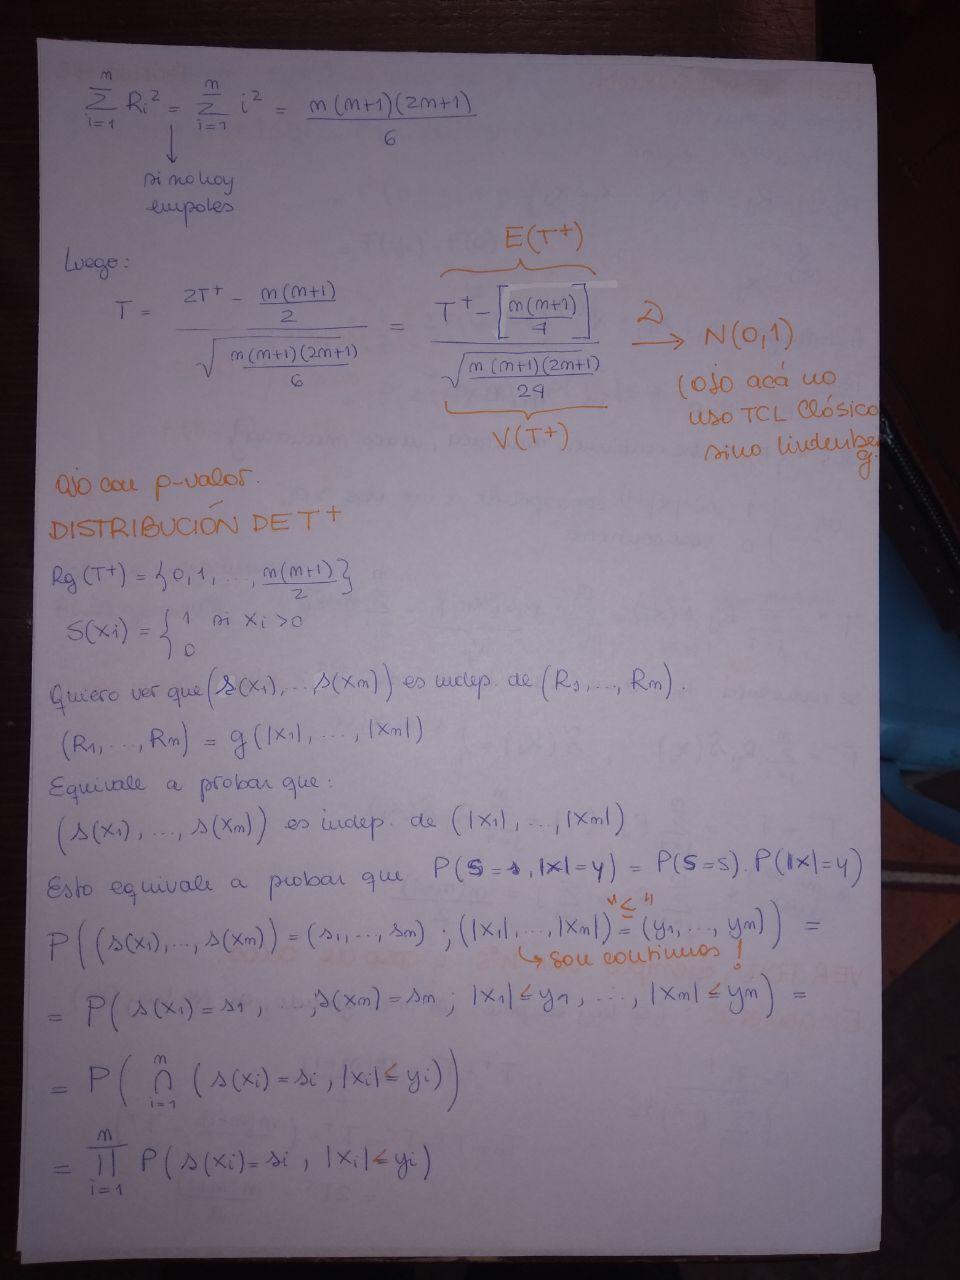 n∑i=1 Ri² = n∑i=1 i² = n(n+1)(2n+1) / 6
si no hay
empates
Luego:
E(T+)
T = (2T+ - n(n+1)/2) / √(n(n+1)(2n+1)/6) = (T+ - [n(n+1)/4]) / √(n(n+1)(2n+1)/24) D→ N(0,1)
V(T+)
(ojo acá no
uso TCL Clásico
sino Lindenber
g.
OJO con p-valor.
DISTRIBUCIÓN DE T+
Rg(T+) = {0,1,...,n(n+1)/2}
S(xi) = { 1 si xi >0
0
Quiero ver que (s(x1),...s(xn)) es indep. de (R1,...,Rn).
(R1,...,Rn) = g(|x1|,...,|xn|)
Equivale a probar que:
(s(x1),...,s(xn)) es indep. de (|x1|,...,|xn|)
Esto equivale a probar que P(S=s,|x|=y) = P(S=s).P(|x|=y)
"≤"
P((s(x1),...,s(xn)) = (s1,...,sn) ; (|x1|,...,|xn|) = (y1,...,yn)) =
↳ son continuas!
= P(s(x1)=s1, ...,s(xn)=sn ; |x1|≤y1, ..., |xn|≤yn) =
= P(n∩i=1 (s(xi)=si, |xi|≤yi))
= n∏i=1 P(s(xi)=si, |xi|≤yi)